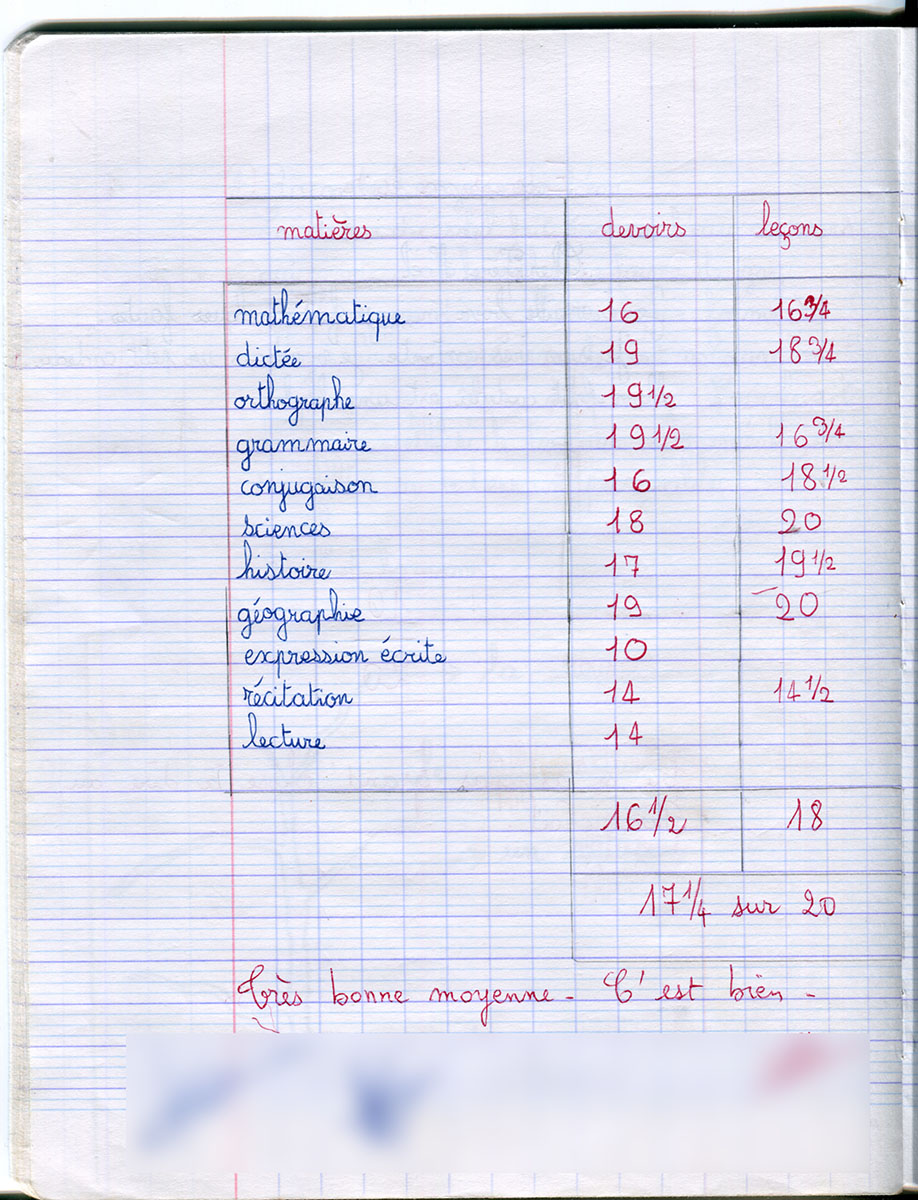 matières devoirs leçons
mathématique 16 16 3/4
dictée 19 18 3/4
orthographe 19 1/2
grammaire 19 1/2 16 3/4
conjugaison 16 18 1/2
sciences 18 20
histoire 17 19 1/2
géographie 19 20
expression écrite 10
récitation 14 14 1/2
lecture 14
16 1/2 18
17 1/4 sur 20
Très bonne moyenne - C'est bien -